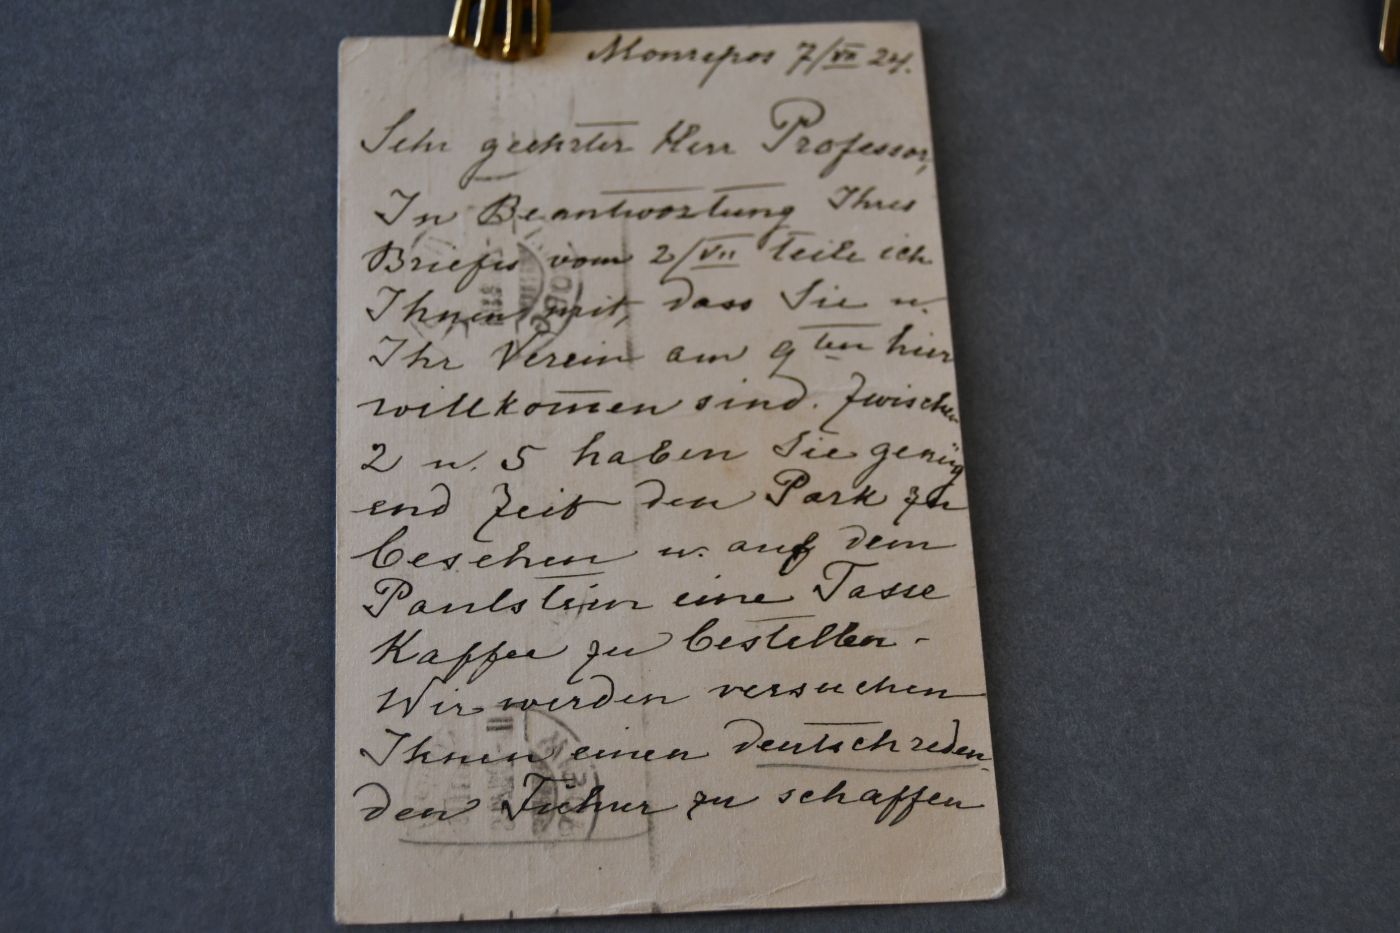 Monrepos 7/VII 24.
Sehr geehrter Herr Professor,
In Beantwortung Ihres
Briefes vom 2/VII teile ich
Ihnen mit, dass Sie u.
Ihr Verein am 9ten hier
willkom̅en sind. Zwischen
2 u. 5 haben Sie genüg
end Zeit den Park zu
besehen u. auf dem
Paulstein eine Tasse
Kaffee zu bestellen -
Wir werden versuchen
Ihnen einen deutschreden-
den Führer zu schaffen